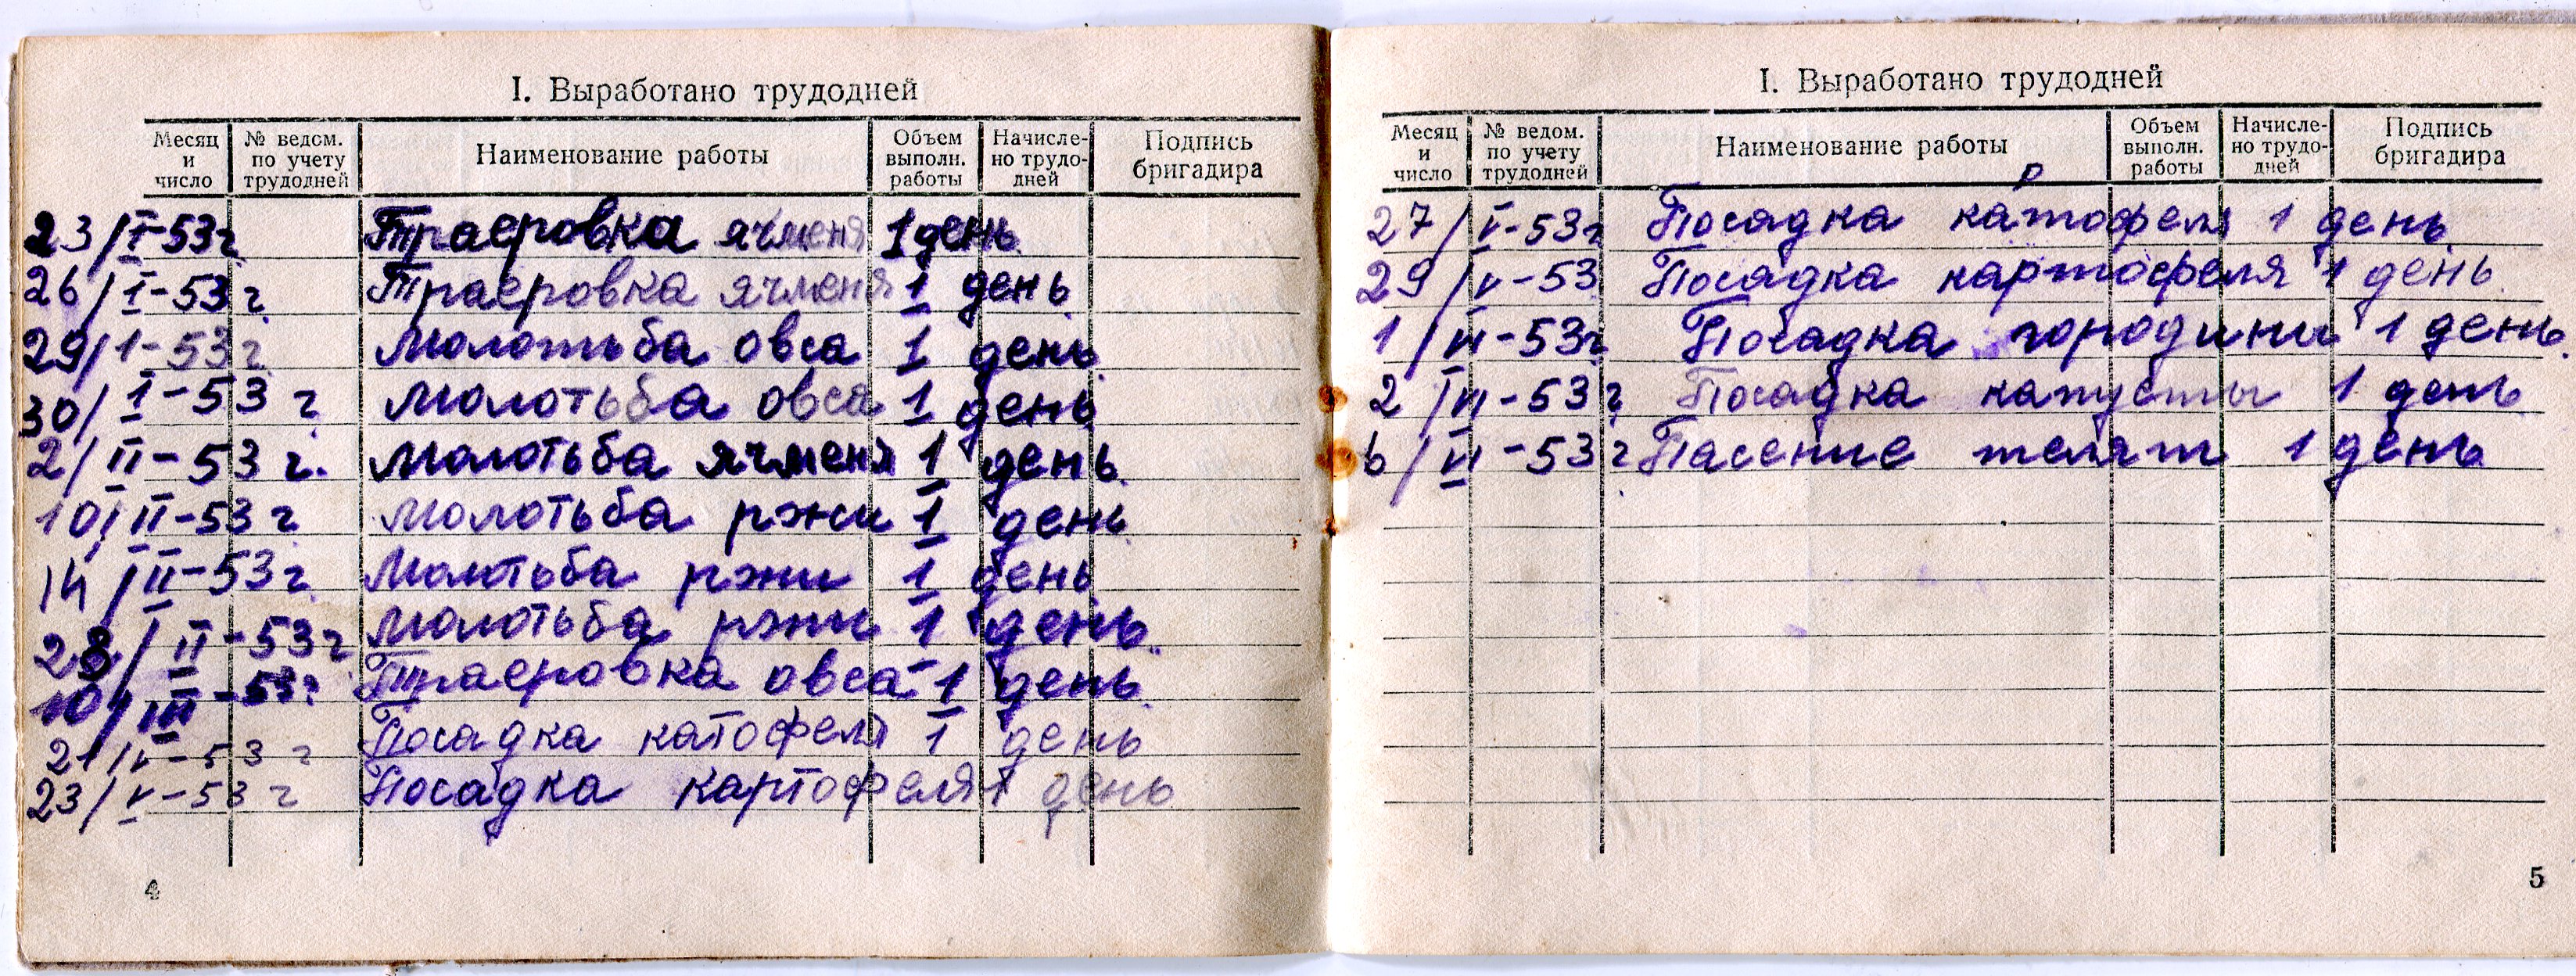 I. Выработано трудодней
Месяц и число
№ ведом. по учету трудодней
Наименование работы
Объем выполн. работы
Начисле-но трудо-дней
Подпись бригадира
23/I-53г Траеровка ячменя 1 день
26/I-53г. Траеровка ячменя 1 день
29/I-53г. Молотьба овса 1 день
30/I-53 г. Молотьба овса 1 день
2/II-53 г. Молотьба ячменя 1 день
10/II-53 г. Молотьба ржи 1 день
14/II-53г. Молотьба ржи 1 день
28/II-53г Молотьба ржи 1 день.
10/III-53г Траеровка овса 1 день
21/V-53 г Посадка катофеля 1 день
23/V-53 г Посадка картофеля 1 день
4
I. Выработано трудодней
Месяц и число
№ ведом. по учету трудодней
Наименование работы
Объем выполн. работы
Начисле-но трудо-дней
Подпись бригадира
27/V-53г Посадка картофеля 1 день
29/V-53 Посадка картофеля 1 день.
1/VI-53г Посадка городини 1 день.
2/VI-53г Посадка капусты 1 день
6/VI-53г. Пасение телят 1 день
5